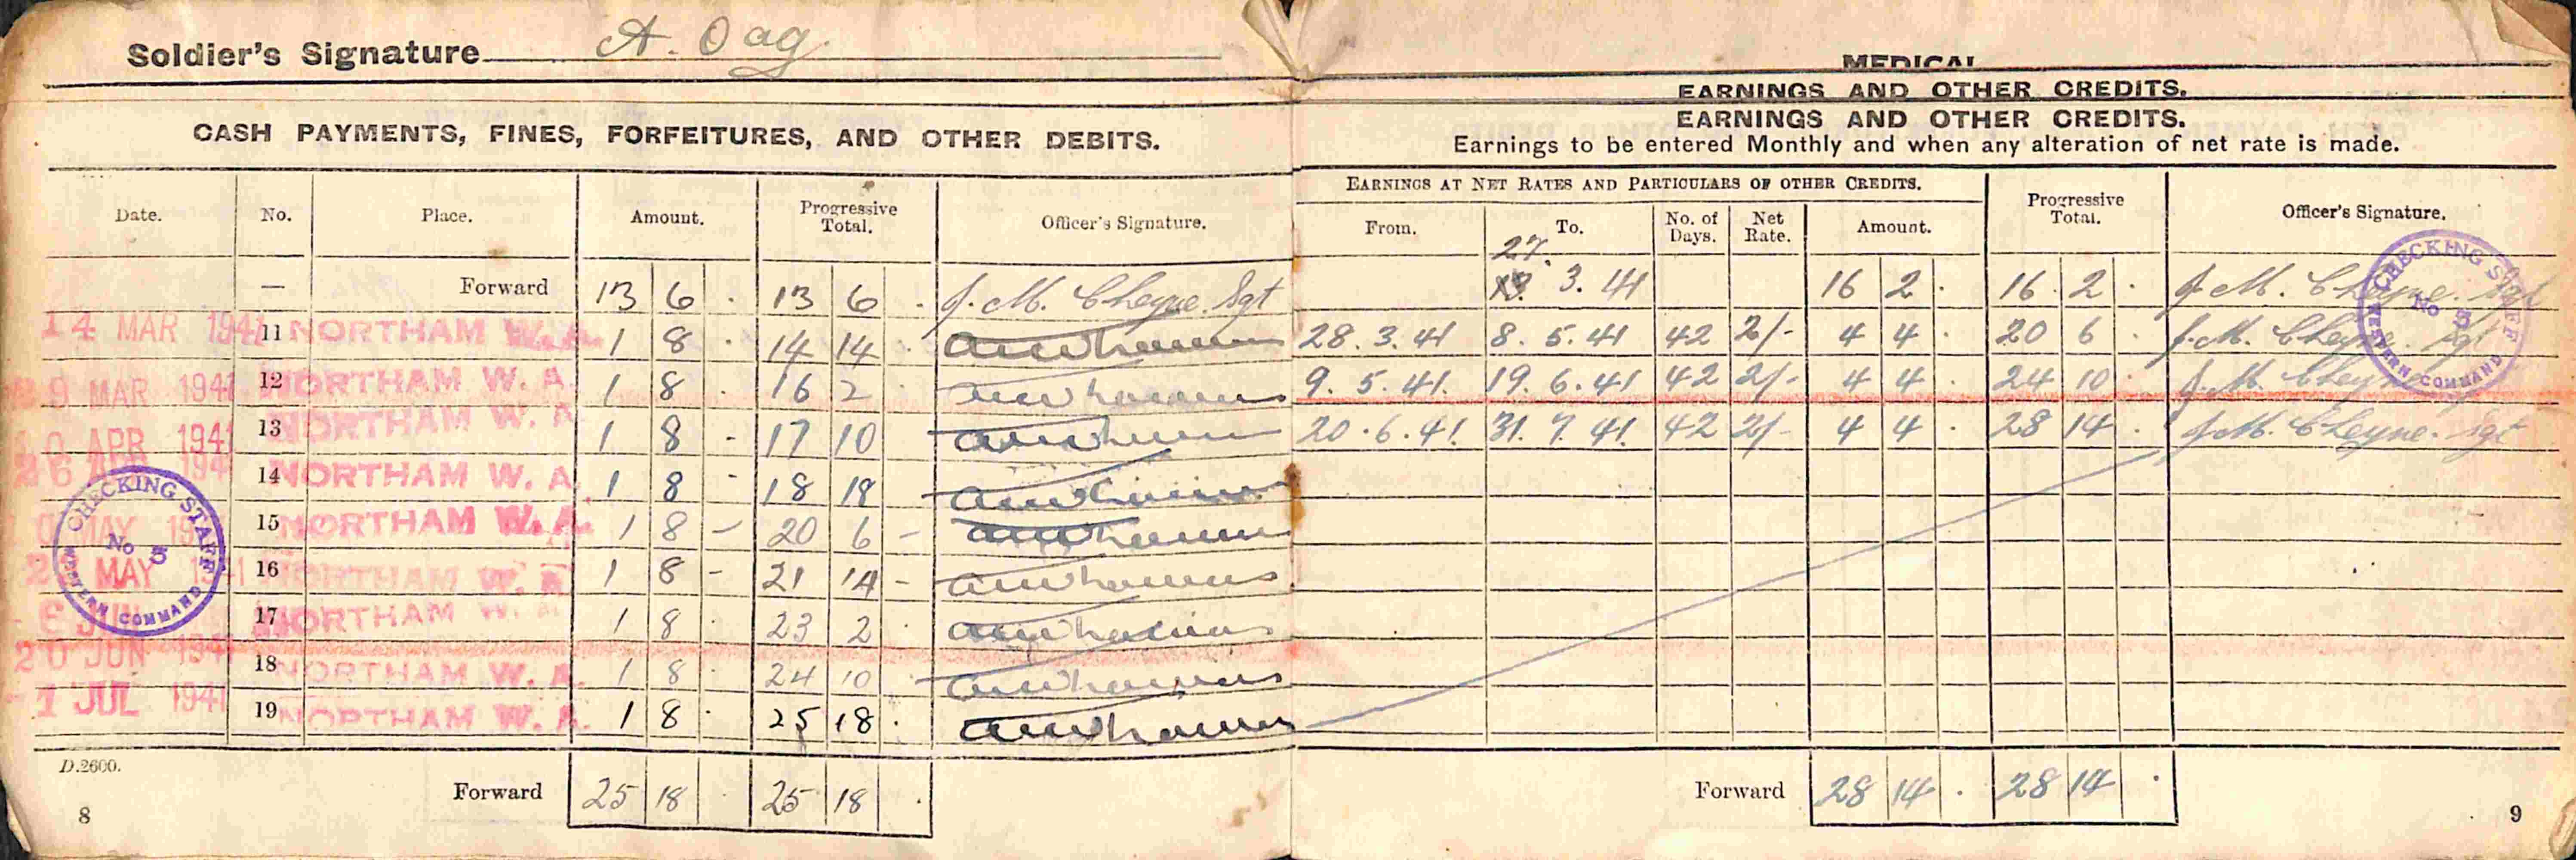 Soldier's Signature A. Oag
CASH PAYMENTS, FINES, FORFEITURES, AND OTHER DEBITS.
Date. No. Place. Amount. Progressive Total. Officer's Signature.
— Forward 13 6 . 13 6 . J. M. Cheyne. Sgt
14 MAR 1941 11 NORTHAM W. A. 1 8 . 14 14 .
9 MAR 1941 12 NORTHAM W. A. 1 8 . 16 2 .
APR 1941 13 NORTHAM W. A. 1 8 - 17 10
26 APR 194 14 NORTHAM W. A. 1 8 - 18 18
MAY 15 NORTHAM W. A. 1 8 - 20 6 -
MAY 1941 16 NORTHAM W. A. 1 8 - 21 14 -
6 JUN 17 NORTHAM W. A. 1 8 . 23 2 .
20 JUN 194 18 NORTHAM W. A. 1 8 24 10
1 JUL 1941 19 NORTHAM W. A. 1 8 . 25 18 .
CHECKING STAFF
No 5
WESTERN COMMAND
D.2600.
Forward 25 18 . 25 18 .
8
MEDICAL
EARNINGS AND OTHER CREDITS.
EARNINGS AND OTHER CREDITS.
Earnings to be entered Monthly and when any alteration of net rate is made.
EARNINGS AT NET RATES AND PARTICULARS OF OTHER CREDITS. Progressive Total. Officer's Signature.
From. To. No. of Days. Net Rate. Amount.
27. 3. 41 16 2 . 16 . 2 . J. M. Cheyne. Sgt
28. 3. 41 8. 5. 41 42 2/- 4 4 . 20 6 . J. M. Cheyne. Sgt
9. 5. 41. 19. 6. 41 42 2/- 4 4 . 24 10 . J. M. Cheyne
20. 6. 41. 31. 7. 41. 42 2/- 4 4 . 28 14 . J. M. Cheyne. Sgt
CHECKING STAFF
No 5
WESTERN COMMAND
Forward 28 14 . 28 14 .
9